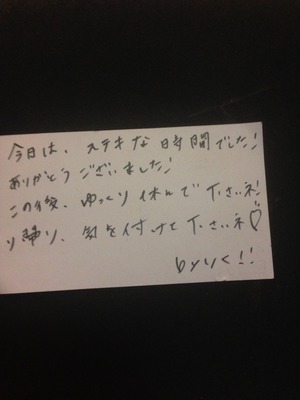 今日は、ステキな時間でした!
ありがとうございました!
この後、ゆっくり休んで下さいネ!
り帰り、気を付けて下さいネ♡
by りく!!